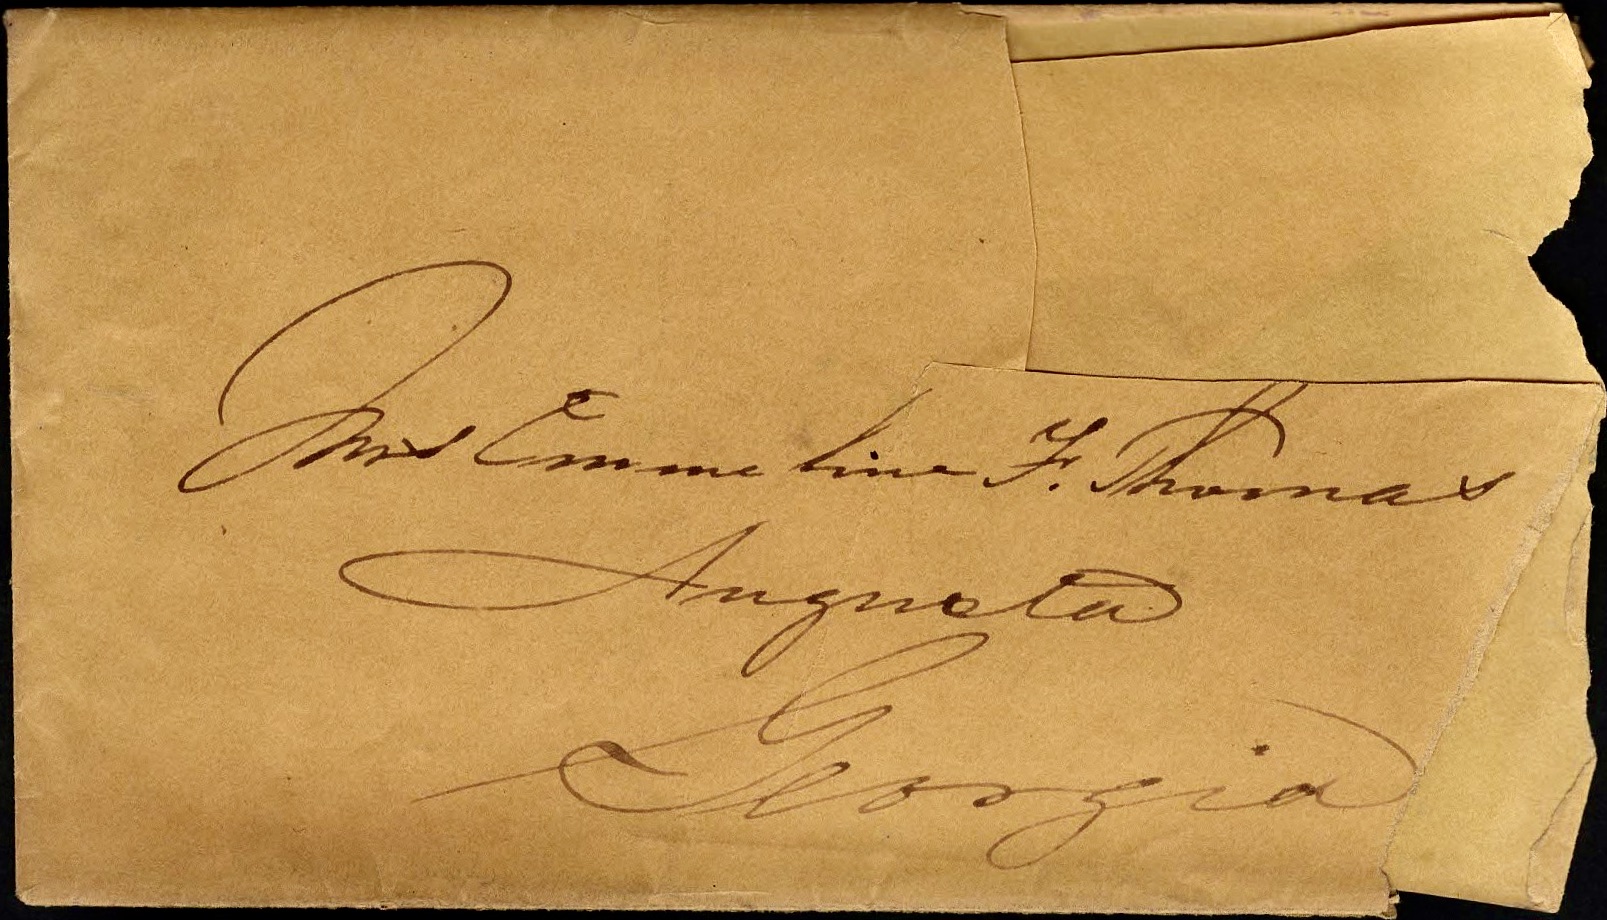 Mrs Emmeline F. Thomas
Augusta
Georgia